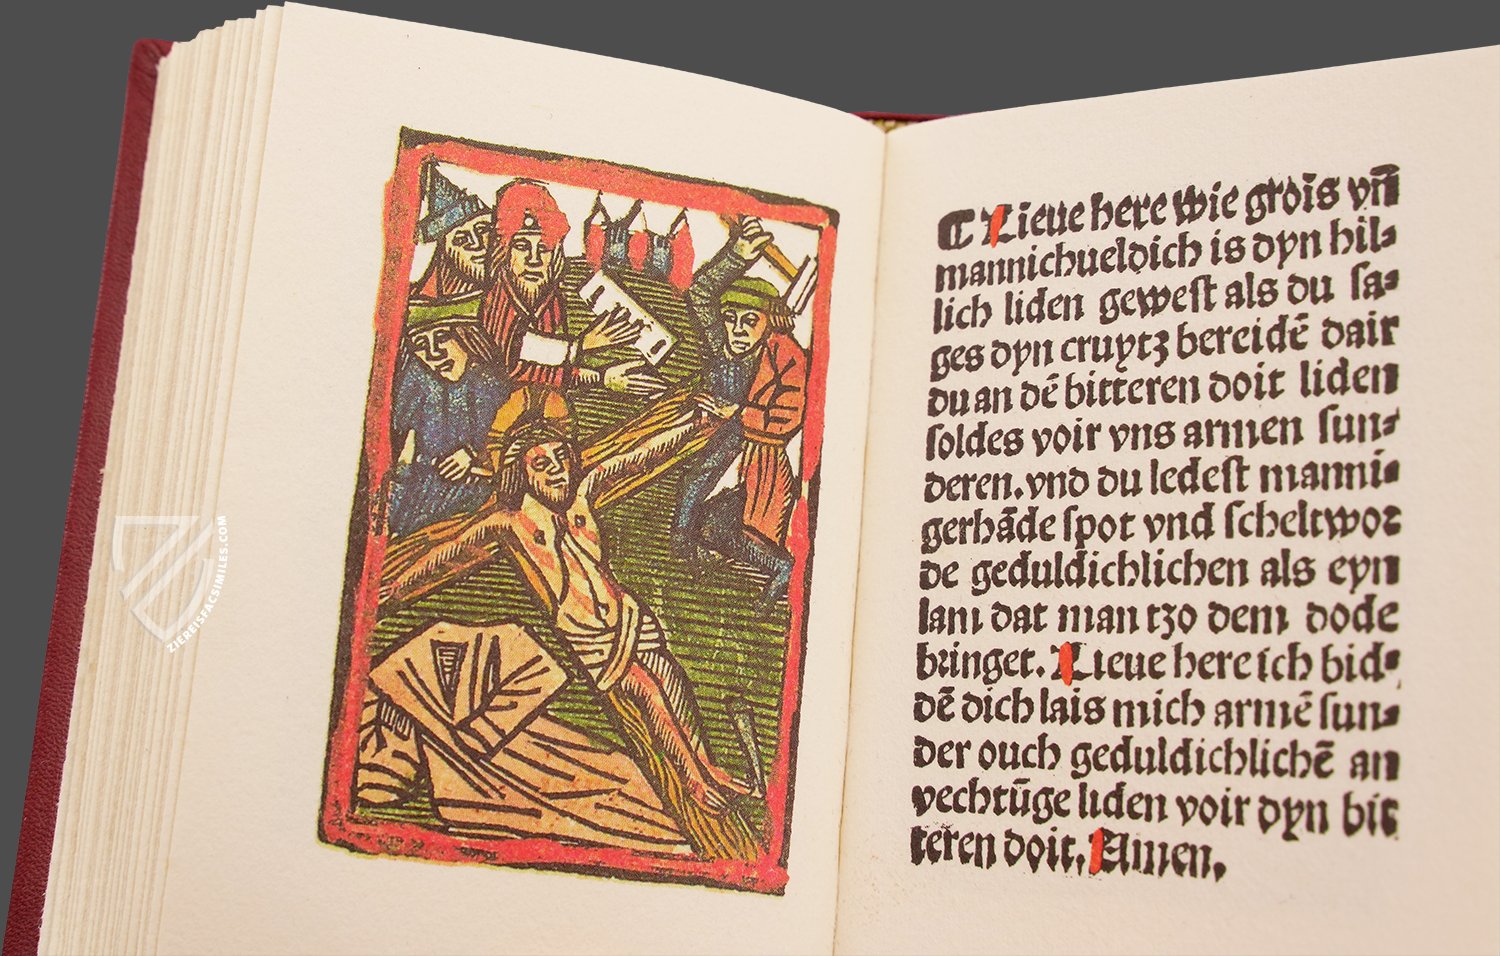 ZIEREISFACSIMILES.COM
⸿ Lieue here wie grois vñ
mannichueldich is dyn hil⸗
lich liden geweſt als du ſa⸗
ges dyn cruytʒ bereidē dair
du an dē bitteren doit liden
ſoldes voir vns armen ſun⸗
deren. vnd du ledeſt manni⸗
gerhāde ſpot vnd ſcheltwoꝛ
de geduldichlichen als eyn
lam dat man tʒo dem dode
bꝛinget. Lieue here ich bid⸗
dē dich lais mich armē ſun⸗
der ouch geduldichlichē an
vechtūge liden voir dyn bit
teren doit. Amen.